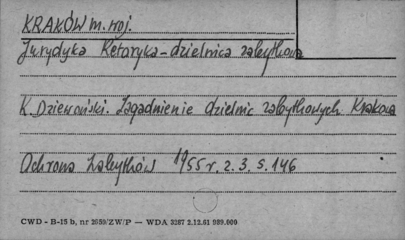 KRAKÓW m. woj.
Jurydyka Retoryka - dzielnica zabytkowa
K. Dziewoński. Zagadnienie dzielnic zabytkowych Krakowa
Ochrona Zabytków 1955 r. z. 3. s. 146
CWD - B-15 b, nr 2650/ZW/P — WDA 3267 2.12.61 989.000